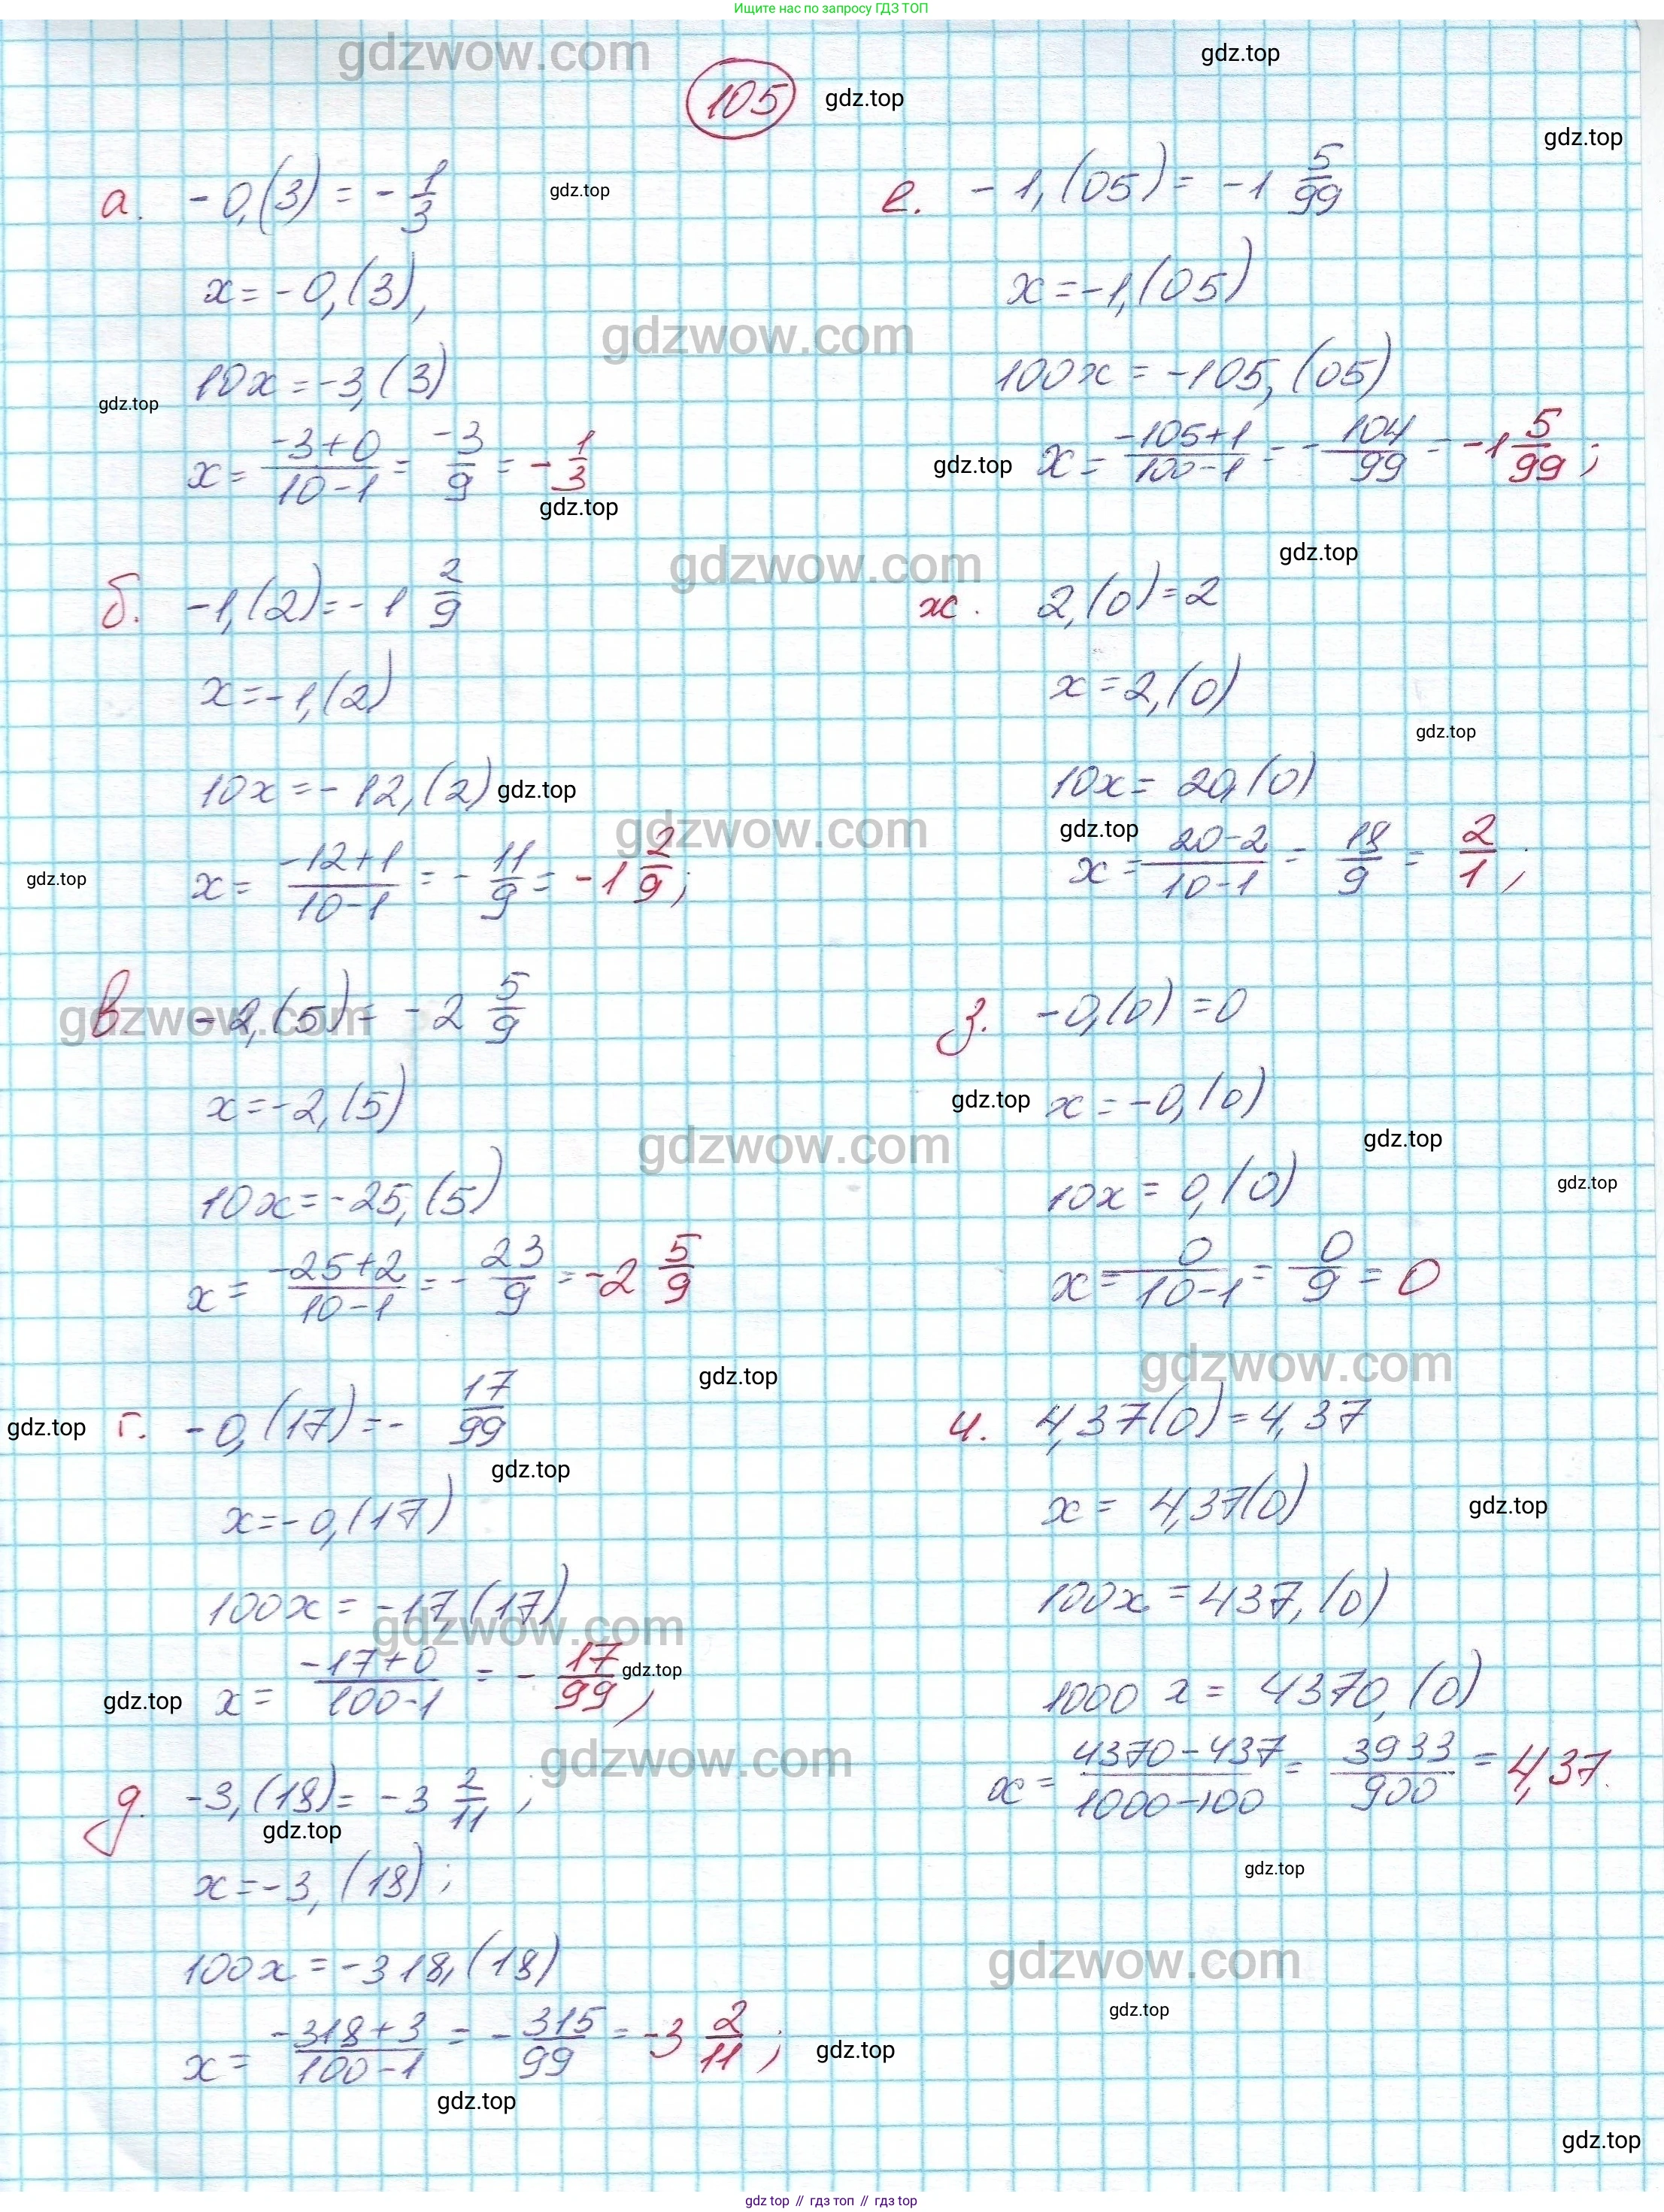 Ищите нас по запросу ГДЗ ТОП
gdzwow.com
gdz.top
105
gdz.top
gdz.top
а. -0,(3) = -1/3
gdz.top
x = -0,(3),
10x = -3,(3)
gdz.top
x = (-3+0)/(10-1) = -3/9 = -1/3
gdz.top
б. -1,(2) = -1 2/9
x = -1,(2)
10x = -12,(2)
gdz.top
x = (-12+1)/(10-1) = -11/9 = -1 2/9;
gdz.top
в -2,(5) = -2 5/9
gdzwow.com
x = -2,(5)
10x = -25,(5)
x = (-25+2)/(10-1) = -23/9 = -2 5/9
gdz.top
gdz.top
г. -0,(17) = -17/99
gdz.top
x = -0,(17)
100x = -17,(17)
gdzwow.com
gdz.top
x = (-17+0)/(100-1) = -17/99,
gdz.top
gdzwow.com
д. -3,(18) = -3 2/11;
gdz.top
x = -3,(18);
100x = -318,(18)
x = (-318+3)/(100-1) = -315/99 = -3 2/11;
gdz.top
gdz.top
е. -1,(05) = -1 5/99
x = -1,(05)
gdzwow.com
100x = -105,(05)
gdz.top
x = (-105+1)/(100-1) = -104/99 = -1 5/99;
gdz.top
gdzwow.com
ж. 2,(0) = 2
x = 2,(0)
gdz.top
10x = 20,(0)
gdzwow.com
gdz.top
x = (20-2)/(10-1) = 18/9 = 2/1;
з. -0,(0) = 0
gdz.top
x = -0,(0)
gdz.top
gdzwow.com
10x = 0,(0)
gdz.top
x = 0/(10-1) = 0/9 = 0
gdzwow.com
и. 4,37(0) = 4,37
x = 4,37(0)
gdz.top
100x = 437,(0)
1000x = 4370,(0)
x = (4370-437)/(1000-100) = 3933/900 = 4,37.
gdz.top
gdzwow.com
gdz.top
gdz.top
gdz top // гдз топ // гдз top